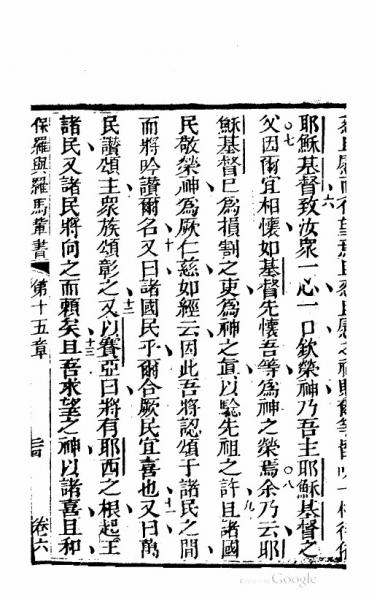 耶穌基督致汝眾一心一口欽榮神乃吾主耶穌基督之
父因爾宜相懷如基督先懷吾等為神之榮焉余乃云耶
穌基督已為損割之吏為神之真以驗先祖之許且諸國
民敬榮神為厥仁慈如經云因此吾將認頌于諸民之間
而將吟讚爾名又曰諸國民乎爾合厥民宜喜也又曰萬
民讚頌主眾族頌彰之又以賽亞曰將有耶西之根起王
諸民又諸民將向之而賴矣且吾求望之神以諸喜且和
保羅與羅馬輩書 第十五章 卷六
Google